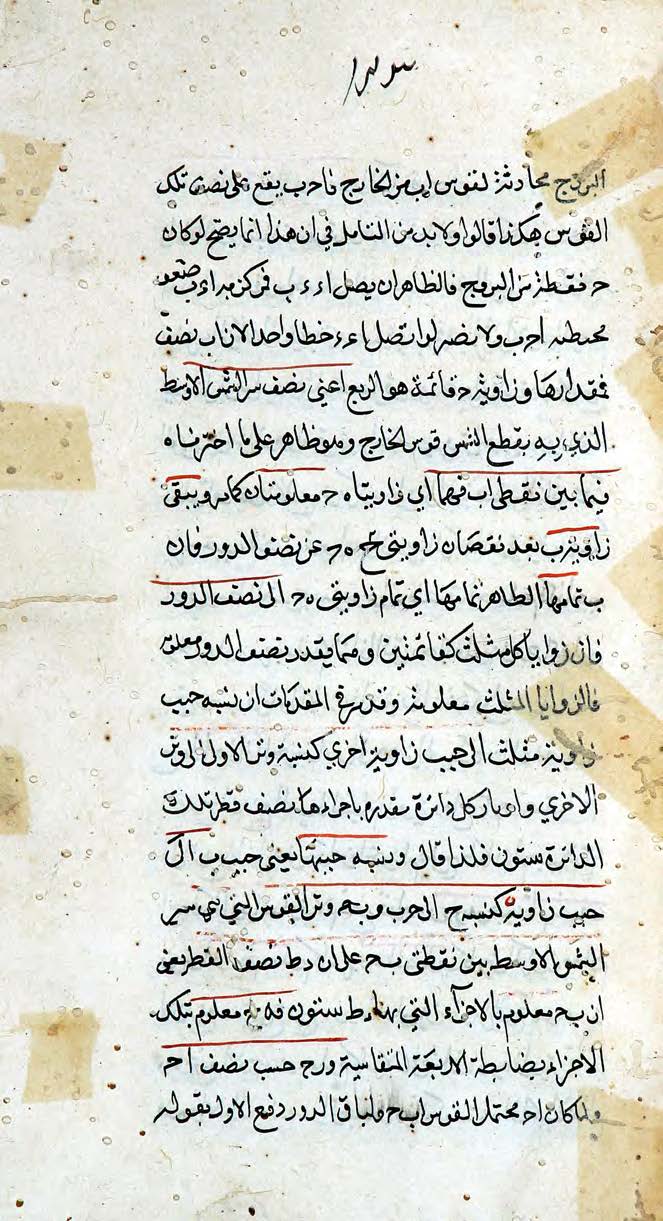 البروج محاذية لقوس اب من الخارج فا ح ب يقع على نصف تلك
القوس هكذا قالوا ولابد من التامل في ان هذا انما يصح لو كان
ح نقطة من البروج فالظاهر ان يصل ا ء ء ب
محيطه ا ح ب ولا يضر لو اتصل ا ء ء خطا واحدا لان اب نصف
فمقدارها وزاوية ح قائمة هو الربع اعني نصف سير الشمس الاوسط
الذي به يقطع الشمس قوس الخارج وهو ظاهر على ما اخترناه
فيما بين نقطتي اب فهما اي زاويتاه ح معلومتان كما مر ويبقى
زاوية ب بعد نقصان زاويتي ه ح عن نصف الدور فان
ب تمامها الظاهر تمامهما اي تمام زاويتي ه ح الى نصف الدور
فان زوايا كل مثلث كقائمتين وهما بقدر نصف الدور معلوم
فالزوايا المثلث معلومة وقد مر في المقدمات ان نسبة جيب
زاوية مثلث الى جيب زاوية اخرى كنسبة وتر الاولى الى وتر
الاخرى واوتار كل دائرة مقدرة باجزاء هانصف قطر تلك
الدائرة ستون فلذا قال ونسبة جيبها يعني جيب ب الى
جيب زاوية ه كنسبة ح الى ح ب و ب ح وتر القوس التي هي سير
الشمس الاوسط بين نقطتي ب ح على ان د ط نصف القطر يعني
ان ب ح معلوم بالاجزاء التي بها ء ط ستون فه ح معلوم بتلك
الاجزاء بضابطة الاربعة المتناسبة و ر ح جيب نصف ا ح
ولما كان ا ح محتملا لقوس ا ب ح ولباقي الدور دفع الاول بقوله